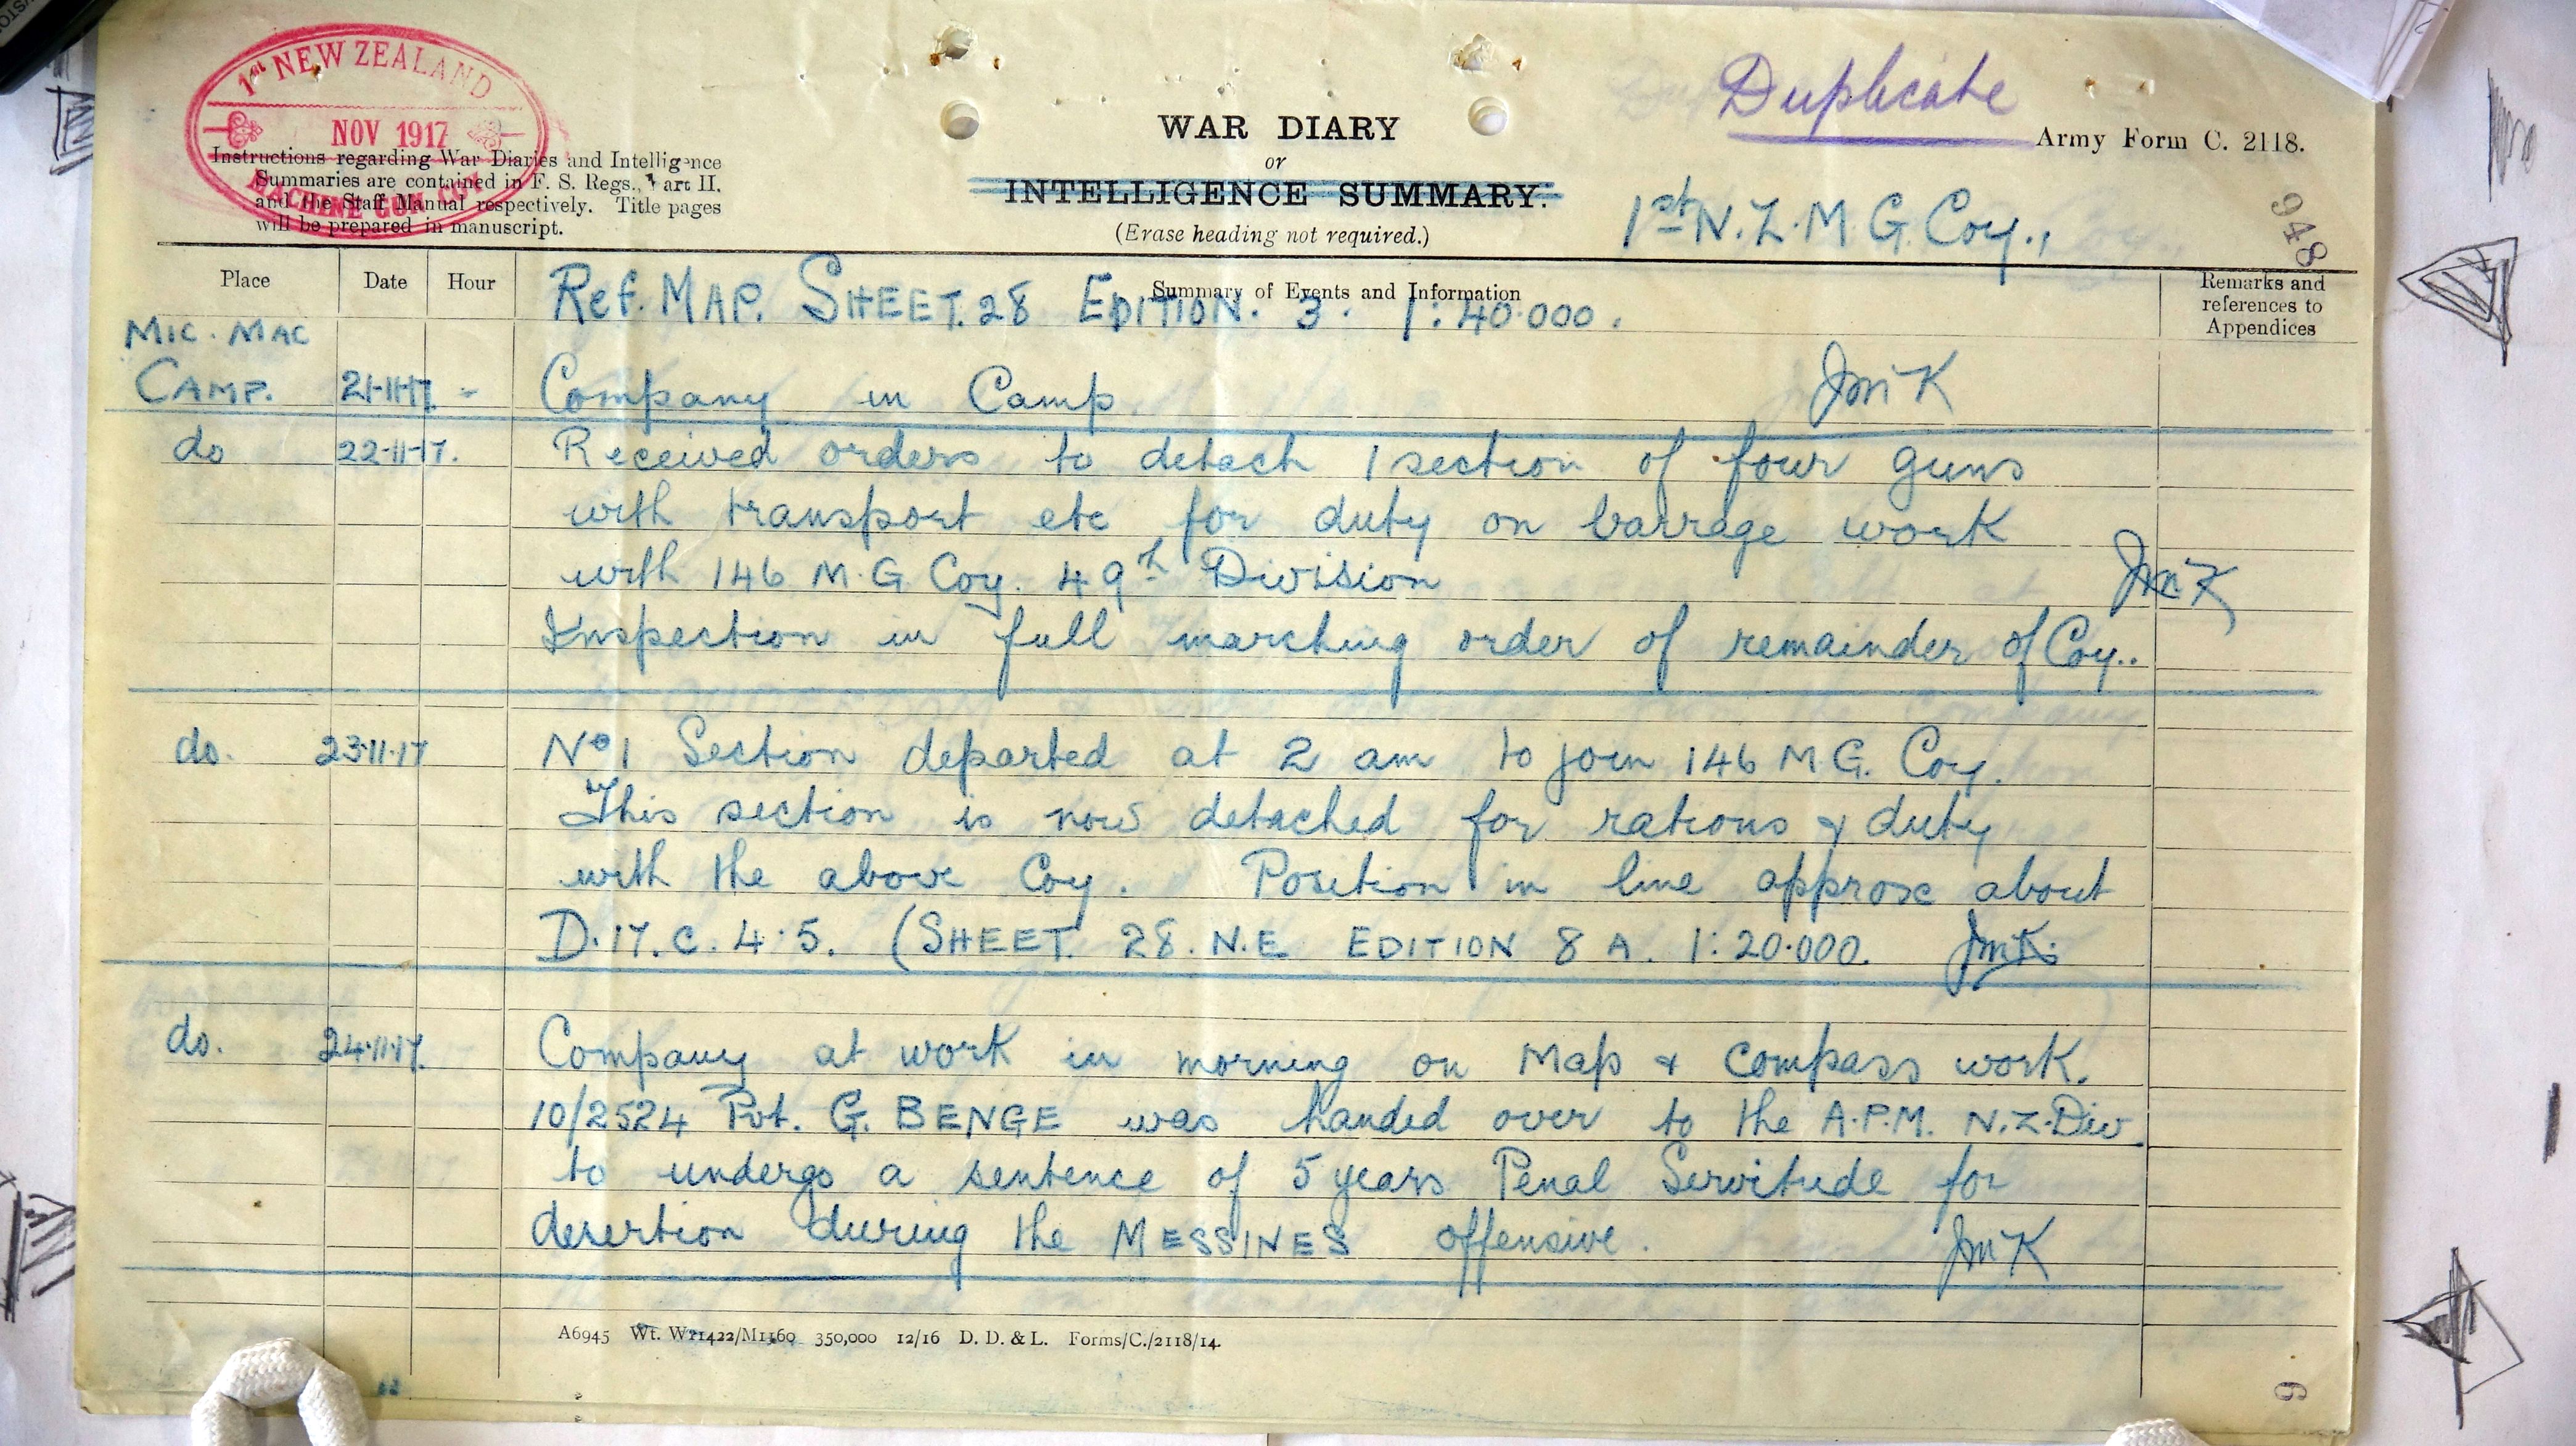 1st NEW ZEALAND
NOV 1917
MACHINE GUN COY
Duplicate
Army Form C. 2118.
WAR DIARY
or
INTELLIGENCE SUMMARY.
(Erase heading not required.)
Instructions regarding War Diaries and Intelligence
Summaries are contained in F. S. Regs., Part II.
and the Staff Manual respectively. Title pages
will be prepared in manuscript.
1st N.Z.M G. Coy.,
948
Place Date Hour Summary of Events and Information Remarks and references to Appendices
Ref. MAP. SHEET. 28 EDITION. 3. 1:40.000.
MIC. MAC
CAMP. 21-11-17. - Company in Camp JMcK
do 22-11-17. Received orders to detach 1 section of four guns
with transport etc for duty on barrage work
with 146 M.G Coy. 49th Division JMcK
Inspection in full marching order of remainder of Coy..
do. 23.11.17 No 1 Section departed at 2 am to join 146 M.G. Coy.
This section is now detached for rations & duty
with the above Coy. Position in line approx about
D.17.c.4.5. (SHEET. 28. N.E EDITION 8 A. 1:20.000. JMcK.
do. 24.11.17. Company at work in morning on Map & Compass work.
10/2524 Pvt. G. BENGE was handed over to the A.P.M. N.Z.Div.
to undergo a sentence of 5 years Penal Servitude for
desertion during the MESSINES offensive. JMcK
A6945 Wt. W11422/M1160 350,000 12/16 D. D. & L. Forms/C./2118/14.
6